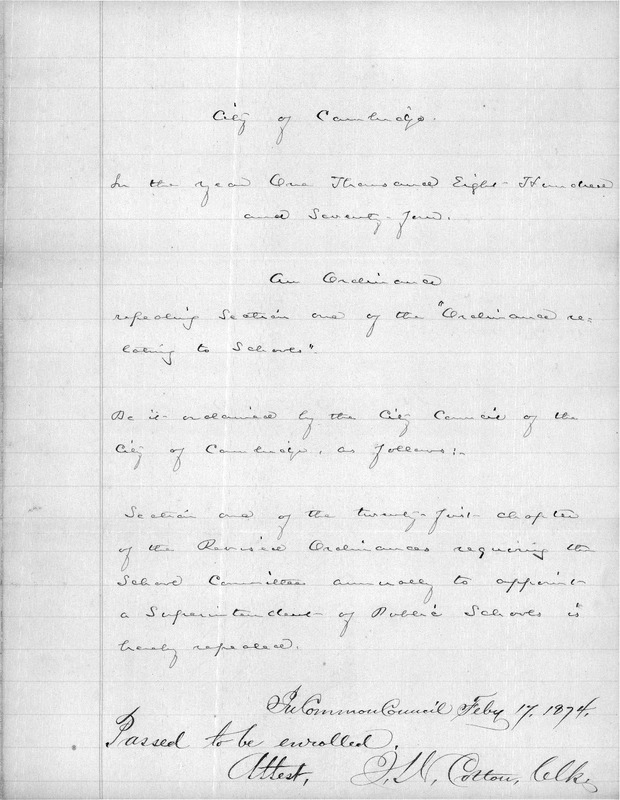 City of Cambridge.
In the year One Thousand Eight Hundred
and Seventy-four.
An Ordinance
repealing Section one of the "Ordinance re=
lating to Schools".
Be it ordained by the City Council of the
City of Cambridge, as follows:-
Section one of the twenty-first chapter
of the Revised Ordinances requiring the
School Committee annually to appoint
a Superintendent of Public Schools is
hereby repealed.
In Common Council Feby 17, 1874.
Passed to be enrolled.
Attest, J. W. Cotton, Clk.